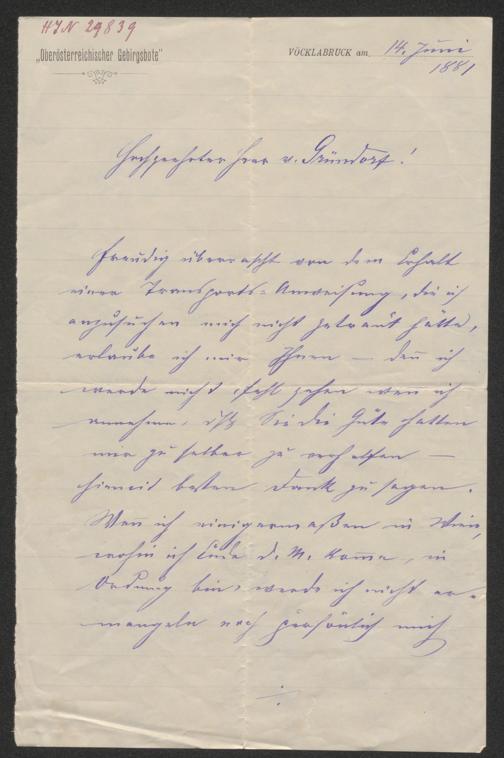 HIN 29839
„Oberösterreichischer Gebirgsbote"
VÖCKLABRUCK am 14. Juni
1881
Hochgeehrter Herr v. Gründorf!
Freudig überrascht von dem Erhalt
einer Transports-Anweisung, die ich
anzusuchen mich nicht getraut hätte,
erlaube ich mir Ihnen — den̅ ich
werde nicht fehl gehen wen̅ ich
annehme, dß Sie die Güte hatten
mir zu selber zu verhelfen —
hiemit besten Dank zu sagen.
Wen̅ ich einigermaßen in Wien,
wohin ich Ende d. M. kom̅e, in
Ordnung bin, werde ich nicht er-
mangeln noch persönlich mich
./.